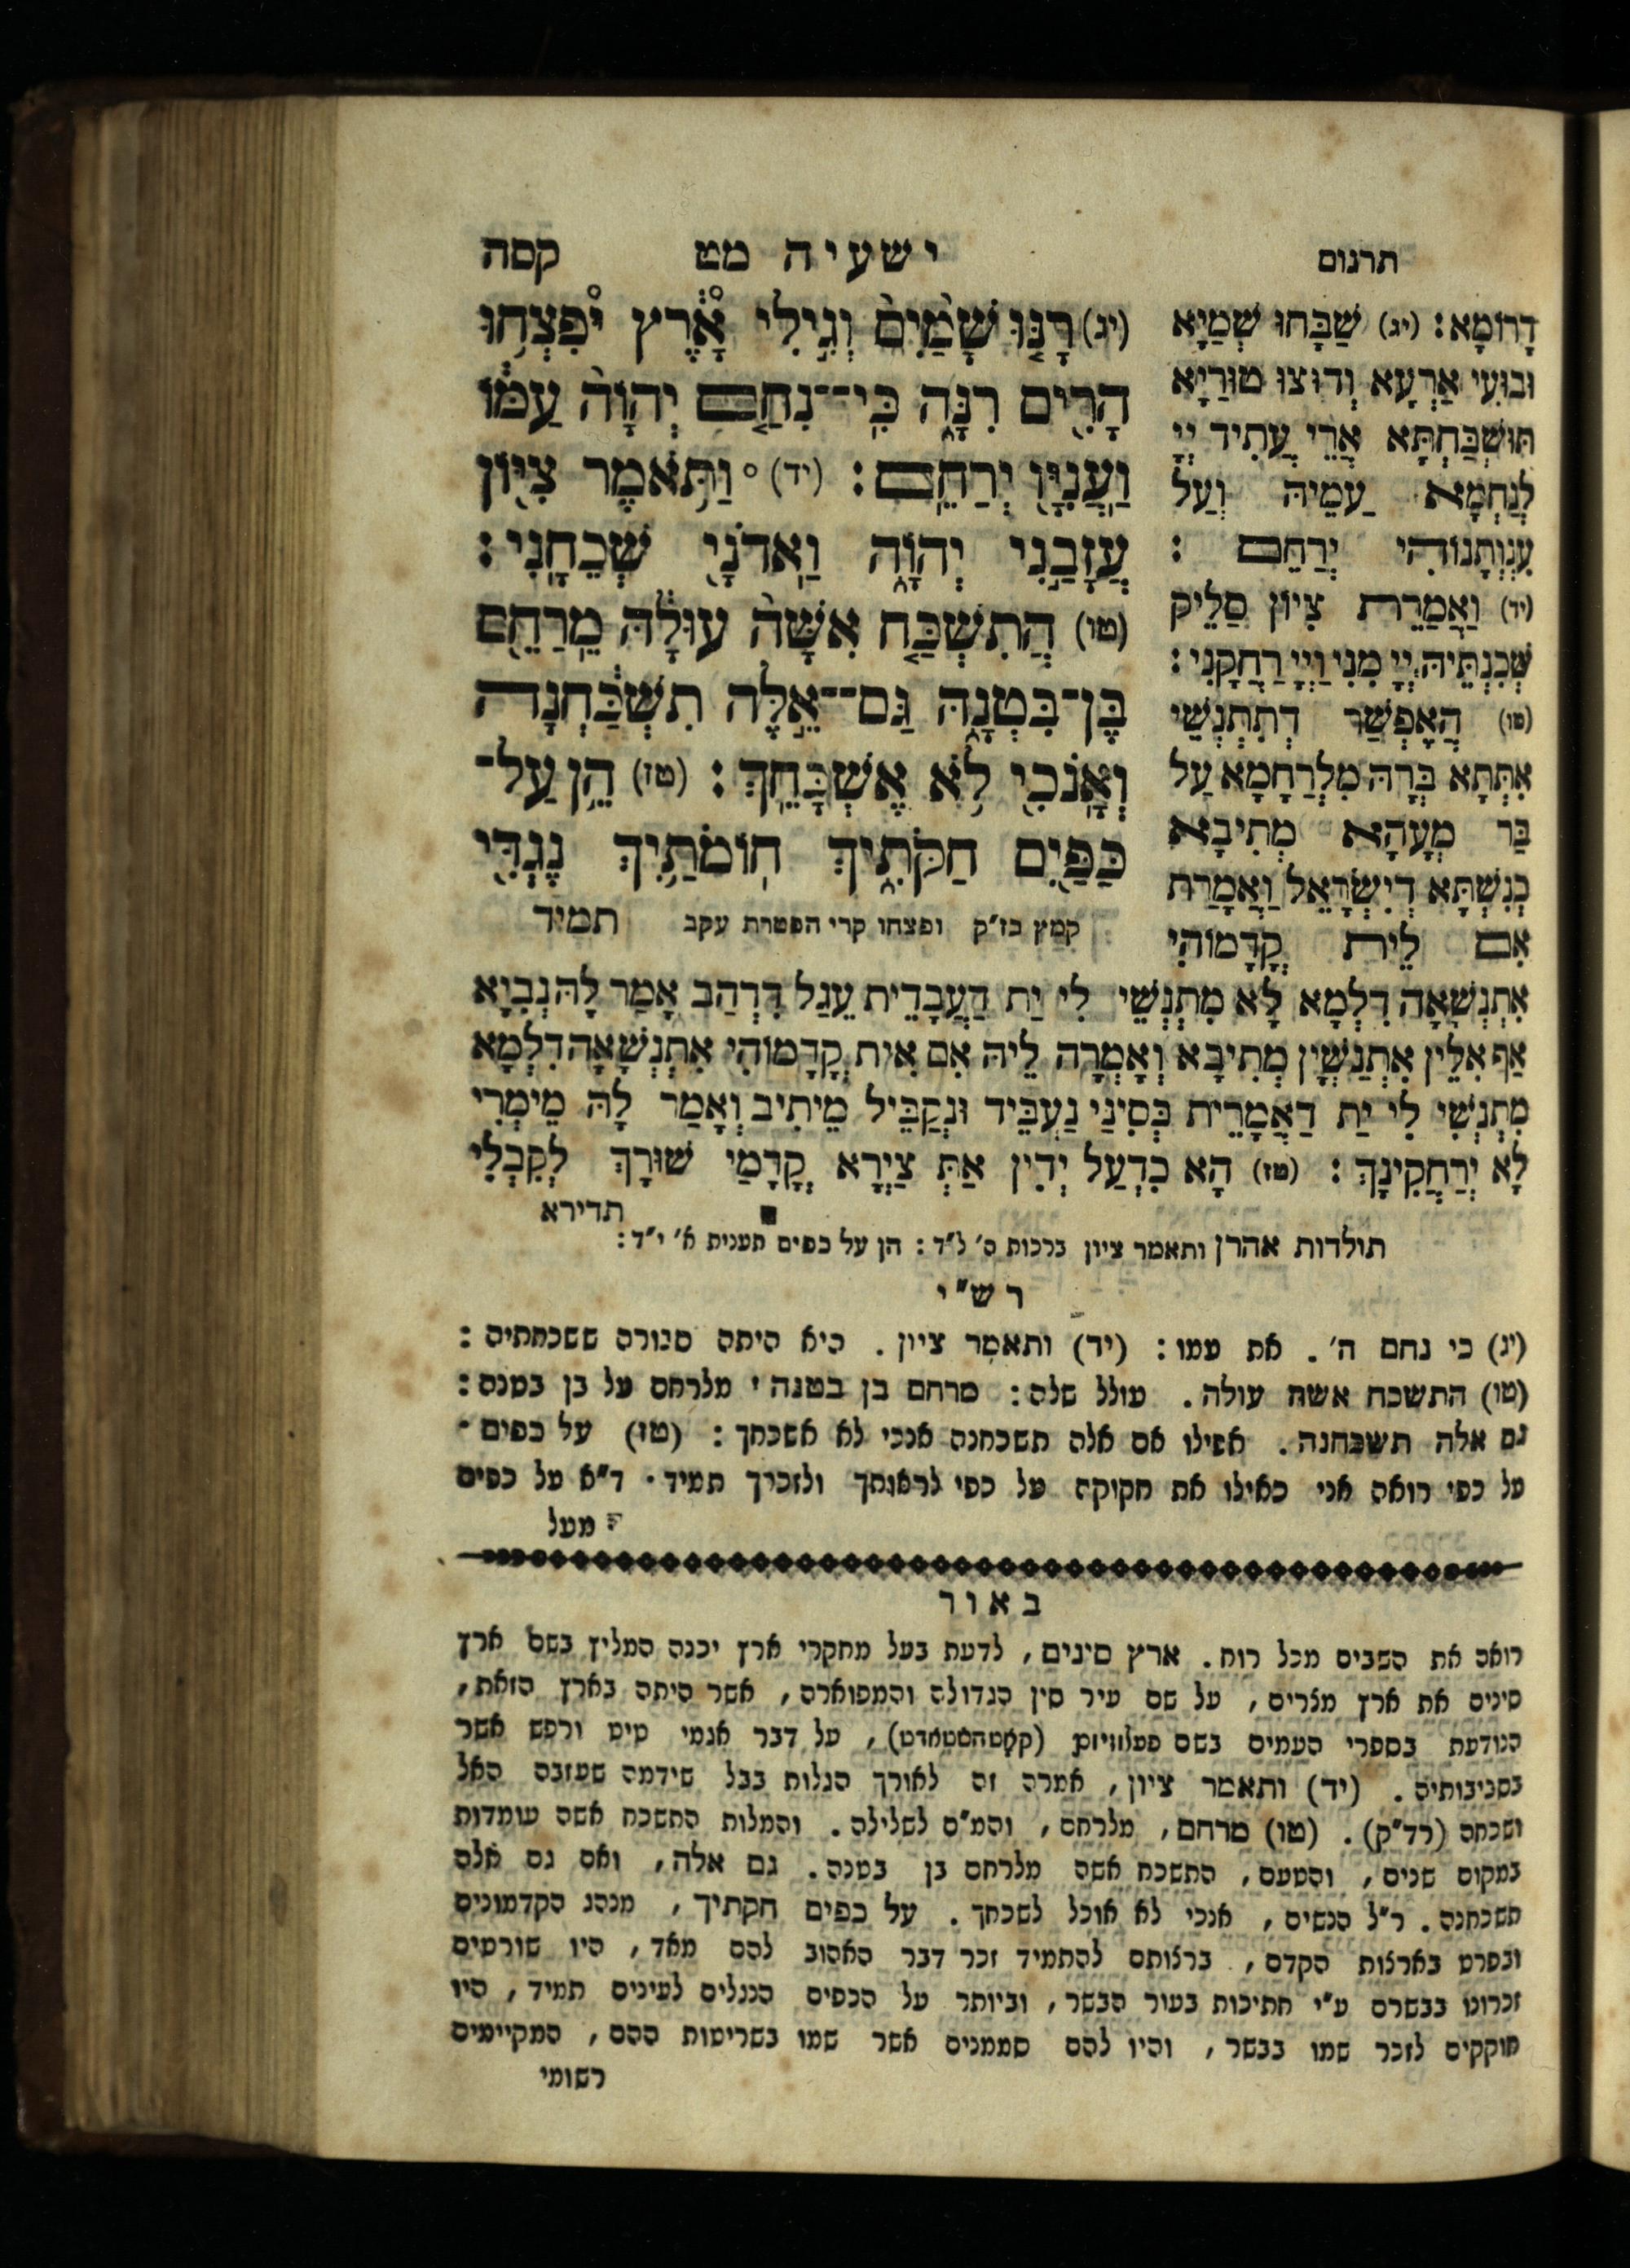 תרגום
ישעיה מט קסה
(יג) רָנּוּ שָׁמַיִם וְגִילִי אָרֶץ יפִצְחוּ
הָרִים רִנָּה כִּי־נִחַם יְהוָֹה עַמּוֹ
וַעֲנִיָּו יְרַחֵם : (יד) וַתֹּאמֶר צִיּוֹן
עֲזָבַנִי יְהוָֹה וַאדֹנָי שְׁכֵחָנִי :
(טו) הֲתִשְׁכַּח אִשָּׁה עוּלָהּ מֵרַחֵם
בֶּן־בִּטְנָהּ גַּם־אֵלֶּה תִשְׁכַּחְנָה
וְאָנֹכִי לֹא אֶשְׁכָּחֵךְ : (טז) הֵן עַל־
כַּפַּיִם חַקֹּתִיךְ חוֹמֹתַיִךְ נֶגְדִּי
תמיד
קמץ בז״ק ופצחו קרי הפטרת עקב
דָרוֹמָא : (יג) שַׁבָּחוּ שְׁמַיָא
וּבוּעִי אַרְעָא וְדוּצוּ טוּרַיָא
תּוּשְׁבַּחְתָּא אֲרֵי עֲתִיד יְיָ
לְנַחְמָא עַמֵיהּ וְעַל
עִנְוְתָנוֹהִי יְרַחֵם :
(יד) וַאֲמַרֵת צִיוֹן סַלֵיק
שְׁכִנְתֵּיהּ יְיָ מִנִי וַיְיָ רַחֲקָנִי :
(טו) הֲאֶפְשַׁר דְתִתְנְשֵׁי
אִתְּתָא בְּרָהּ מִלְרַחָמָא עַל
בַּר מְעָהָא מְתִיבָא
כְּנִשְׁתָּא דְיִשְׂרָאֵל וַאֲמָרַת
אִם לֵית קֳדָמוֹהִי
אִתְנְשָׁאָה דִלְמָא לָא מִתְנְשֵׁי לִי יַת דַעֲבָדֵית עֵגַל דִּדְהַב אָמַר לָהּ נְבִיָא
אַף אִלֵין אִתְנַשְׁיָן מְתִיבָא וְאָמְרָה לֵיהּ אִם אִית קֳדָמוֹהִי אִתְנְשָׁאָה דִלְמָא
מִתְנְשִׁי לִי יַת דַאֲמָרֵית בְּסִינַי נַעְבֵּיד וּנְקַבֵּיל מֵיתִיב וְאָמַר לָהּ מֵימְרִי
לָא יְרַחֲקִינָךְ : (טז) הָא כִדְעַל יְדִין אַתְּ צַיְרָא קֳדָמַי שׁוּרָךְ לְקִבְלִי
תדירא
תולדות אהרן ותאמר ציון ברכות ס׳ ל״ד : הן על כפים תענית א׳ י״ד :
רש״י
(יג) כי נחם ה׳ . את עמו : (יד) ותאמר ציון . היא היתה סבורה ששכחתיה :
(טו) התשכח אשה עולה . עולל שלה : מרחם בן בטנה מלרחם על בן בטנה :
גם אלה תשכחנה . אפילו אם אלה תשכחנה אנכי לא אשכחך : (טז) על כפים ־
על כפי רואה אני כאילו את חקוקה על כפי לראותך ולזכיך תמיד · ד״א על כפים
מעל
באור
רואה את השבים מכל רוח . ארץ סינים , לדעת בעל מחקרי ארץ יכנה המליץ בשם ארץ
סינים את ארץ מצרים , על שם עיר סין הגדולה והמפוארה , אשר היתה בארץ הזאת ,
הנודעת בספרי העמים בשם פעלוזיום (קאָטהשטאדט) , על דבר אגמי טיט ורפש אשר
בסביבותיה . (יד) ותאמר ציון , אמרה זה לאורך הגלות בבל שידמה שעזבה האל
ושכחה (רד״ק) . (טו) מרחם , מלרחם , והמ״ם לשלילה . והמלות התשכח אשה עומדות
במקום שנים , והטעם , התשכח אשה מלרחם בן בטנה . גם אלה , ואם גם אלה
תשכחנה . ר״ל הנשים , אנכי לא אוכל לשכחך . על כפים חקתיך , מנהג הקדמונים
ובפרט בארצות הקדם , ברצותם להתמיד זכר דבר האהוב להם מאד , היו שורטים
זכרונו בבשרם ע״י חתיכות בעור הבשר , וביותר על הכפים הנגלים לעינים תמיד , היו
חוקקים לזכר שמו בבשר , והיו להם סממנים אשר שמו בשריטות ההם , המקיימים
רשומי